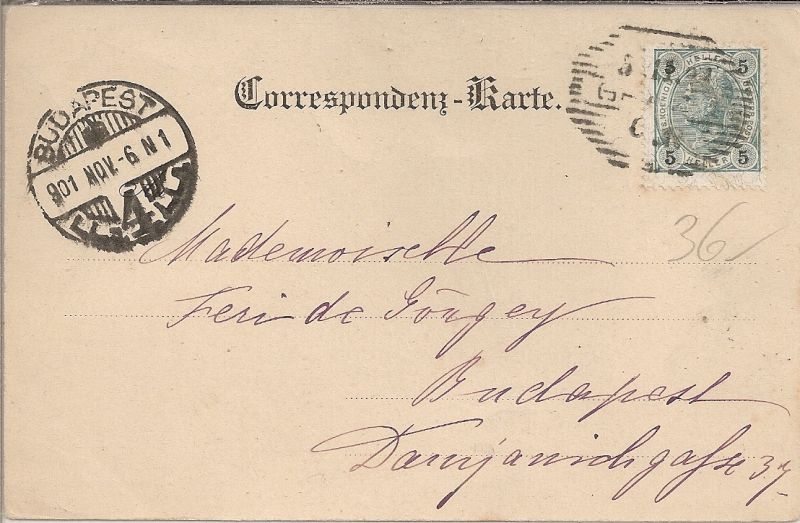 Correspondenz-Karte.
BUDAPEST
901 NOV.-6 N1
4
5 HELLER 5
5 HELLER 5
36
Mademoiselle
Feri de Görgey
Budapest
Damjanichgasse 37